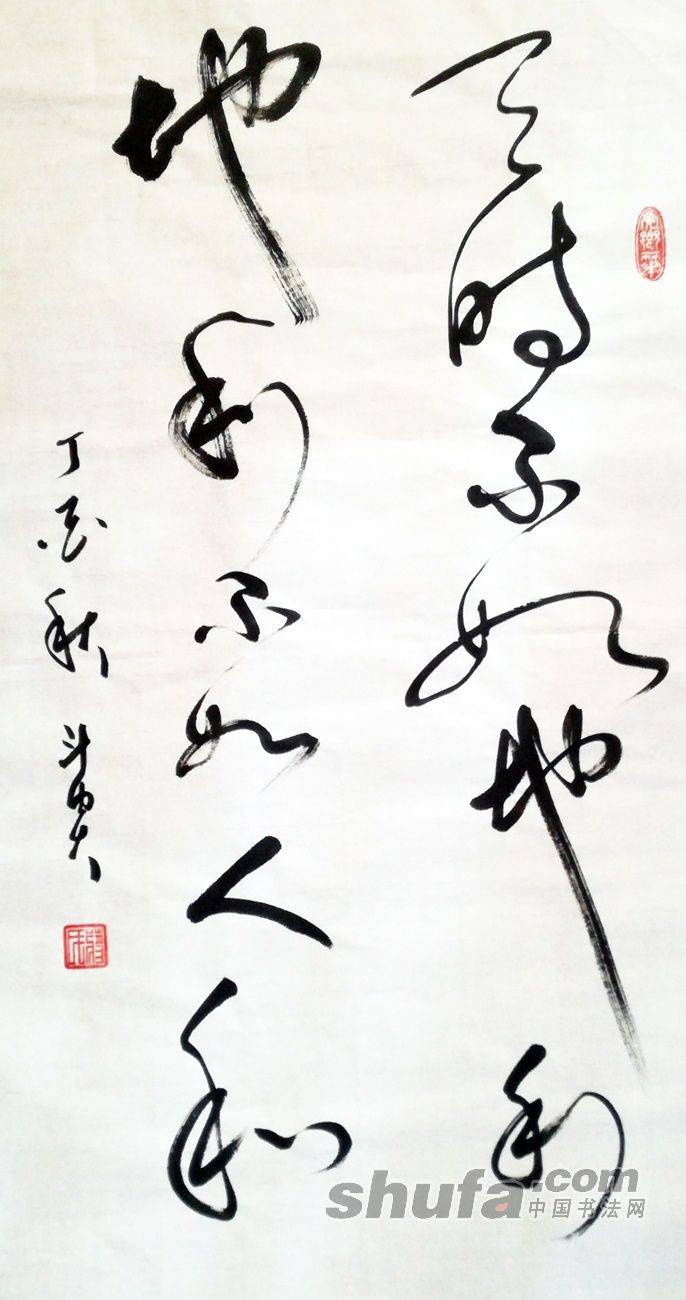 天时不如地利
地利不如人和
丁酉秋 斗
shufa.com
中国书法网